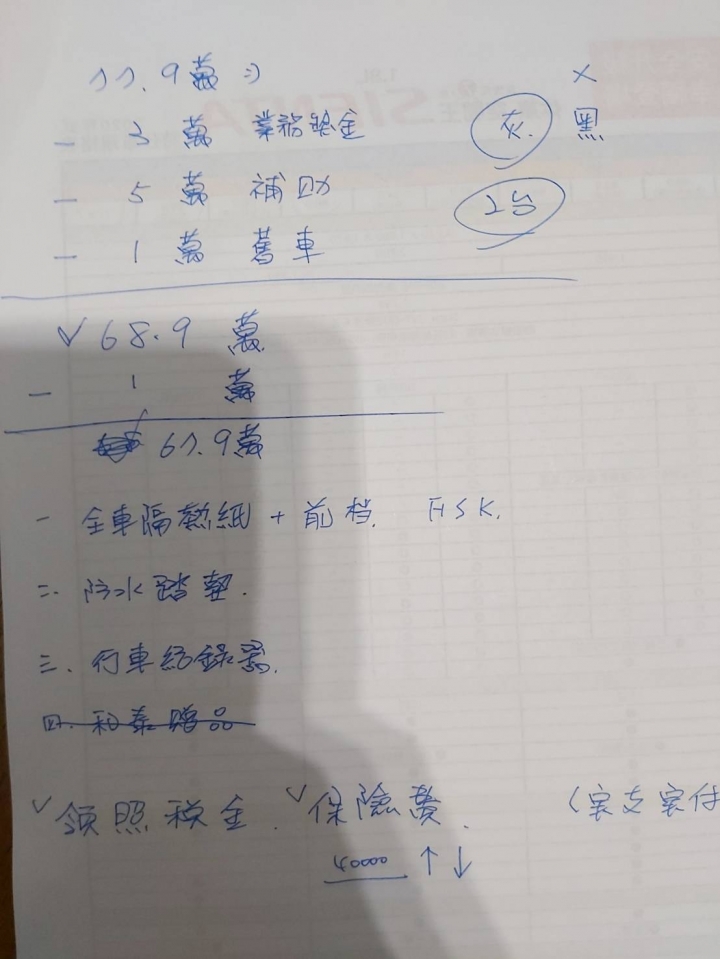 77.9萬
X
- 3萬 業務獎金
灰. 黑
- 5萬 補助
2台
- 1萬 舊車
✓ 68.9 萬
- 1 萬
67.9萬
一 全車隔熱紙 + 前档. FSK.
二. 防水踏墊.
三. 行車紀錄器.
四. 和泰贈品
✓領照稅金. ✓保險費. (實支實付
40000 ↑↓
SIENTA
1.8L